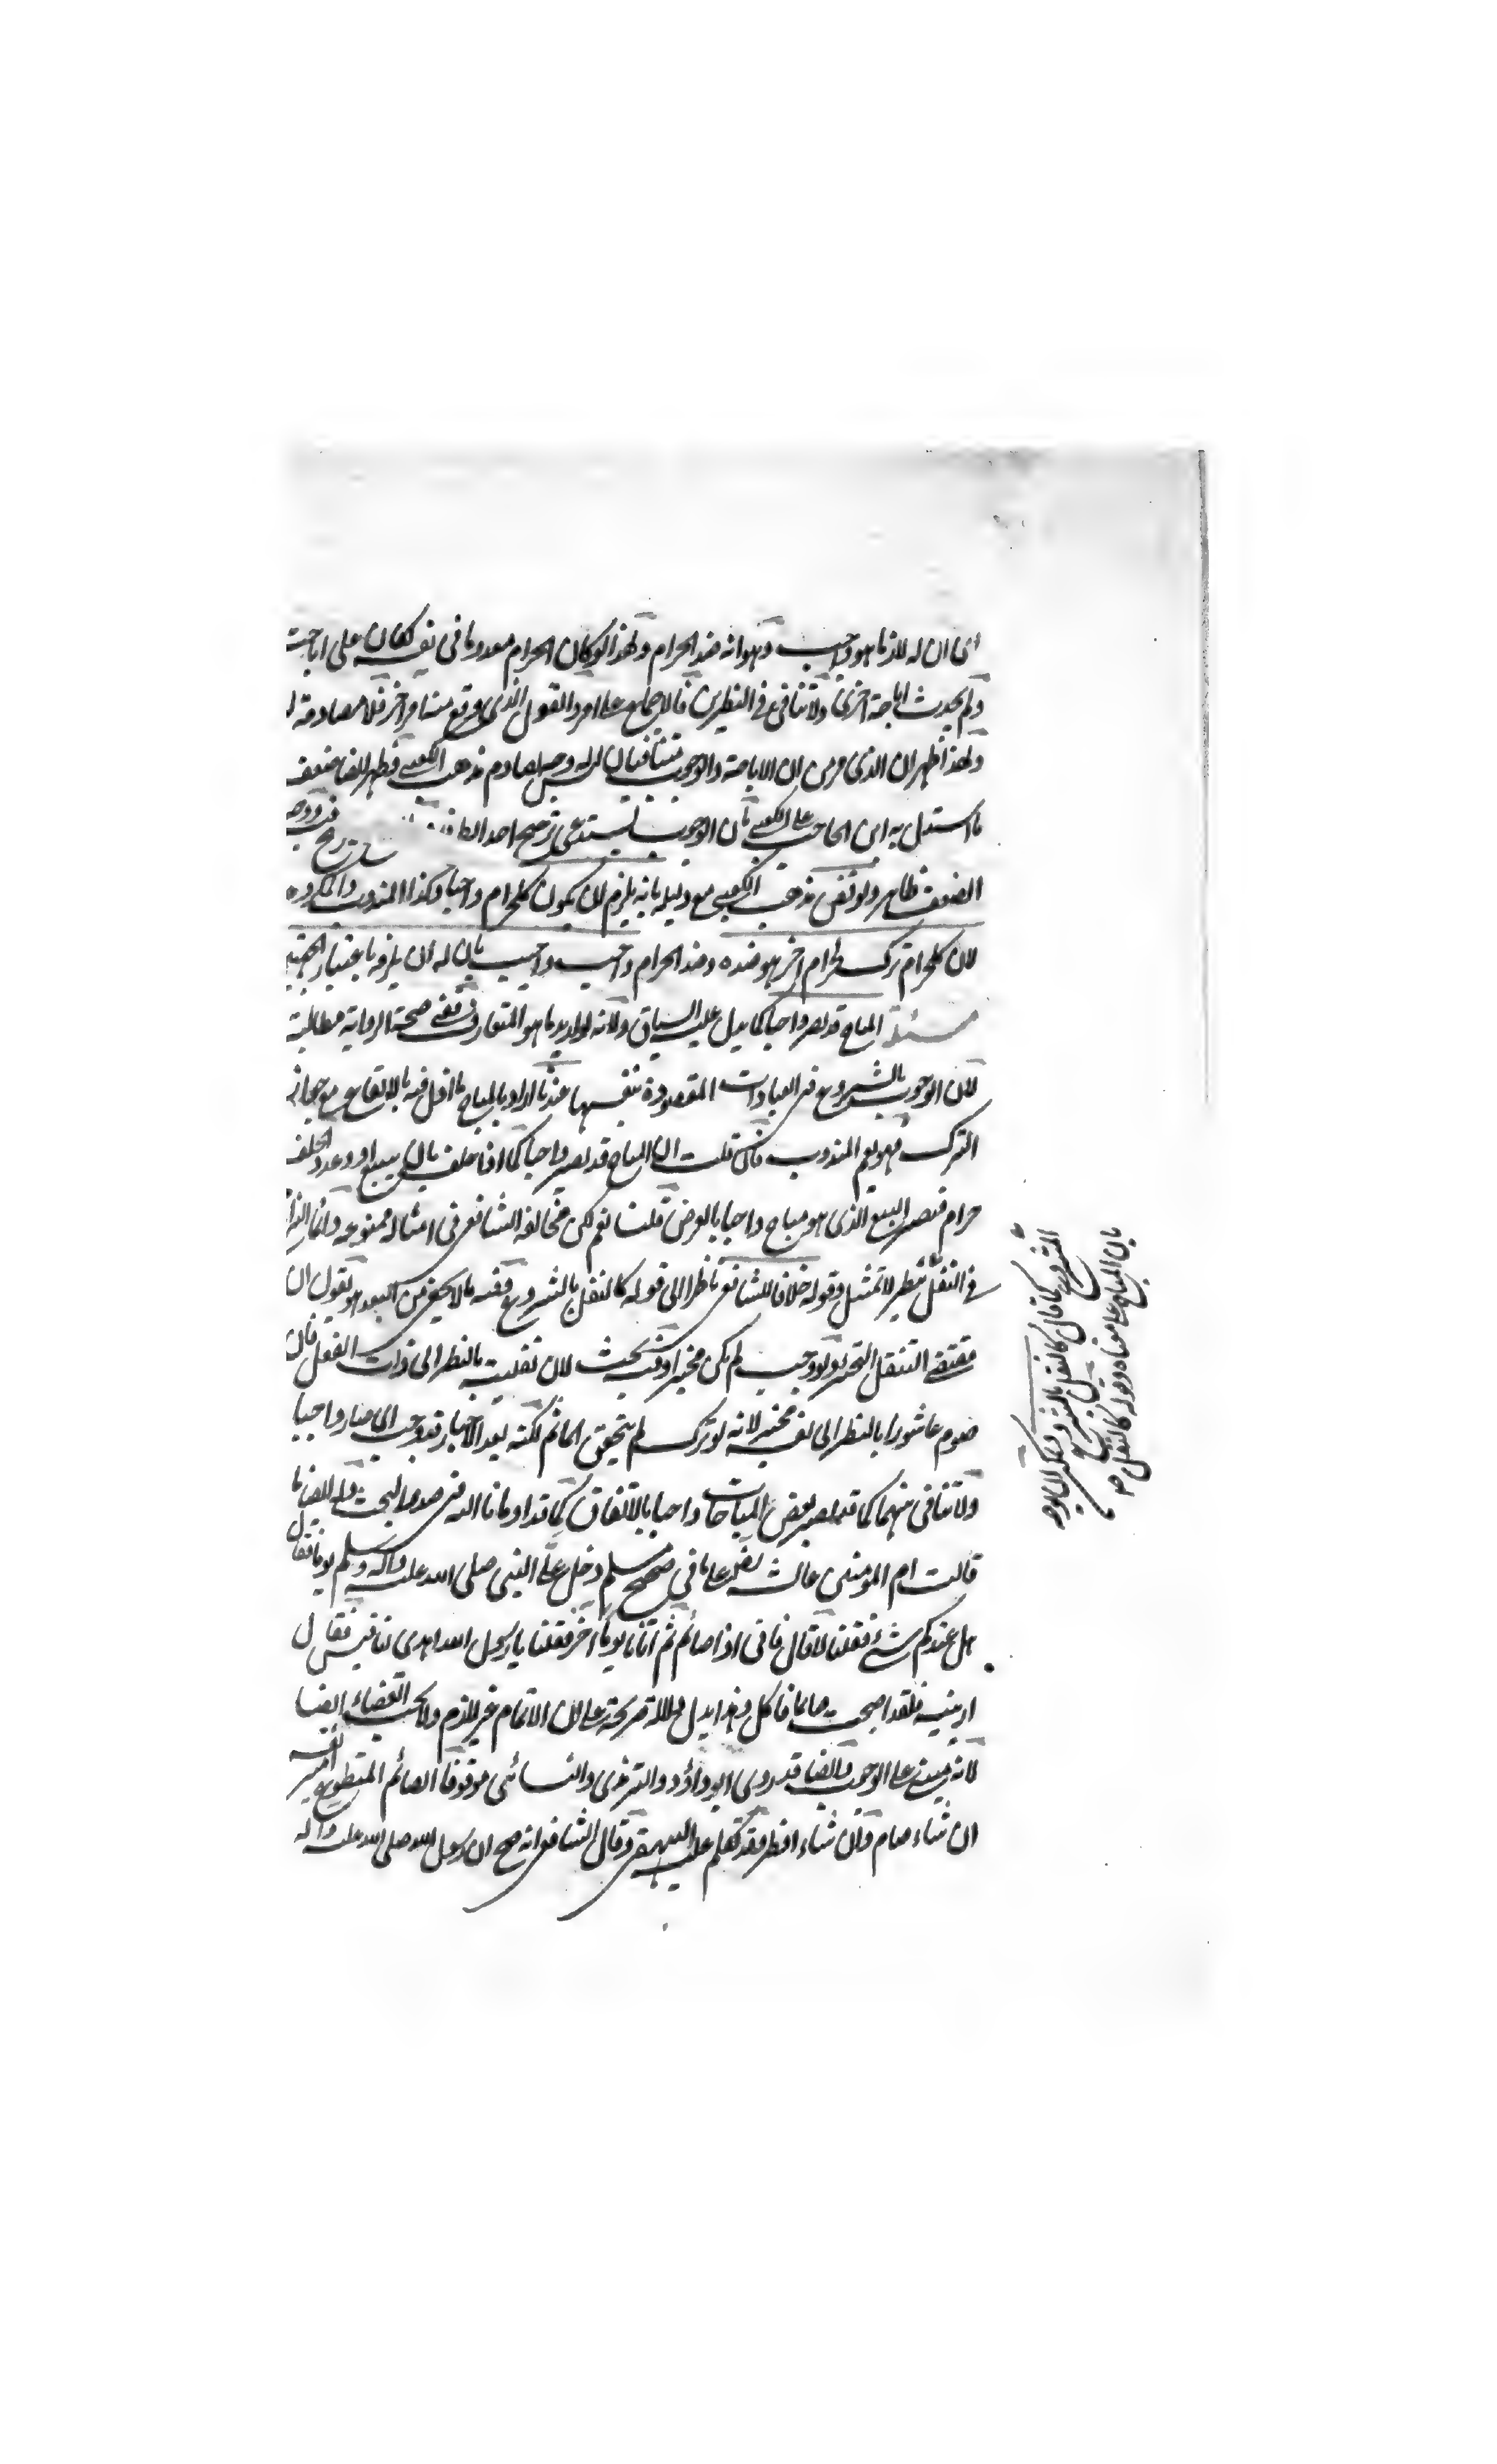 أي ان له لازما هو واجب وهو انه ضد الحرام ولهذا لو كان الحرام معدوما في نفسه كان على اباحته
ولم يحدث اباحة اخرى ولا تنافي في النظرين فالاجماع على امر والقول الذي هو وقع منا امر اخر فلا مصادمة
ولهذا ظهر ان الذي من ان الاباحة والوجوب متنافيان ليس له وجه يصادم مذهب الكعبي فظهر ايضا ضعف
ما استدل به ابن الحاجب على الكعبي بان الوجوب يستدعي ترجيح احد
الضعف ظاهر ولو نقض مذهب الكعبي مع دليله بانه يلزم ان يكون كل حرام واجبا وكذا المندوب والمكروه
لان كل حرام ترك لحرام اخر هو ضده وضد الحرام واجب واجيب بان له ان يلتزمه باعتبار الجهتين
مسئلة المباح قد يصير واجبا كما يدل عليه السياق ولانه لو اريد ما هو المتعارف ففي صحة الرواية مطالبة
لان الوجوب بالشروع في العبادات المقصودة بنفسها عندنا اراد بالمباح ما اذن فيه بالايقاع مع جواز
الترك فهو يعم المندوب فان قلت ان المباح قد يصير واجبا كما اذا حلف بان يبيع او وعد وخلف
حرام فيصير البيع الذي هو مباح واجبا بالعرض قلت نعم لكن مخالفة الشافعي في امثاله ممنوعة وانما النزاع
في النفل تنظير لا تمثيل وقوله خلافا للشافعي ناظرا الى قوله كالنفل بالشروع ففيه ما لا يخفى من البعد هو يقول ان
مقتضى التنفل التخيير ولو وجب لم يكن مخيرا وفيه بحث لان نفليته بالنظر الى ذات الفعل فان
صوم عاشورا بالنظر الى نفسه مخير لانه لو ترك لم يتحقق الماثم لكنه بعد الاختيار قد وجب اي صار واجبا
ولا تنافي منهما كما قد يصير بعض المباحات واجبا بالاتفاق كما قد اومانا اليه في صدر البحث وله ايضا ما
قالت ام المؤمنين عائشة رض على ما في صحيح مسلم دخل علي النبي صلى الله عليه وآله وسلم يوما فقال
هل عندكم شيء فقلنا لا قال فاني اذا صائم ثم اتانا يوما اخر فقلنا يا رسول الله اهدي لنا حيس فقال
ارينيه فلقد اصبحت صائما فاكل وهذا يدل دلالة صريحة على ان الاتمام غير لازم ولا يجب القضاء ايضا
لانه مبني على الوجوب وايضا قد روى ابو داؤد والترمذي والنسائي موقوفا الصائم المتطوع امير نفسه
ان شاء صام وان شاء افطر وقد تكلم عليه البيهقي وقال الشافعي انه صح ان رسول الله صلى الله عليه وآله
بان المباح على معناه وقوله كالنفل
المشروع كما قال كالنفل بالشروع